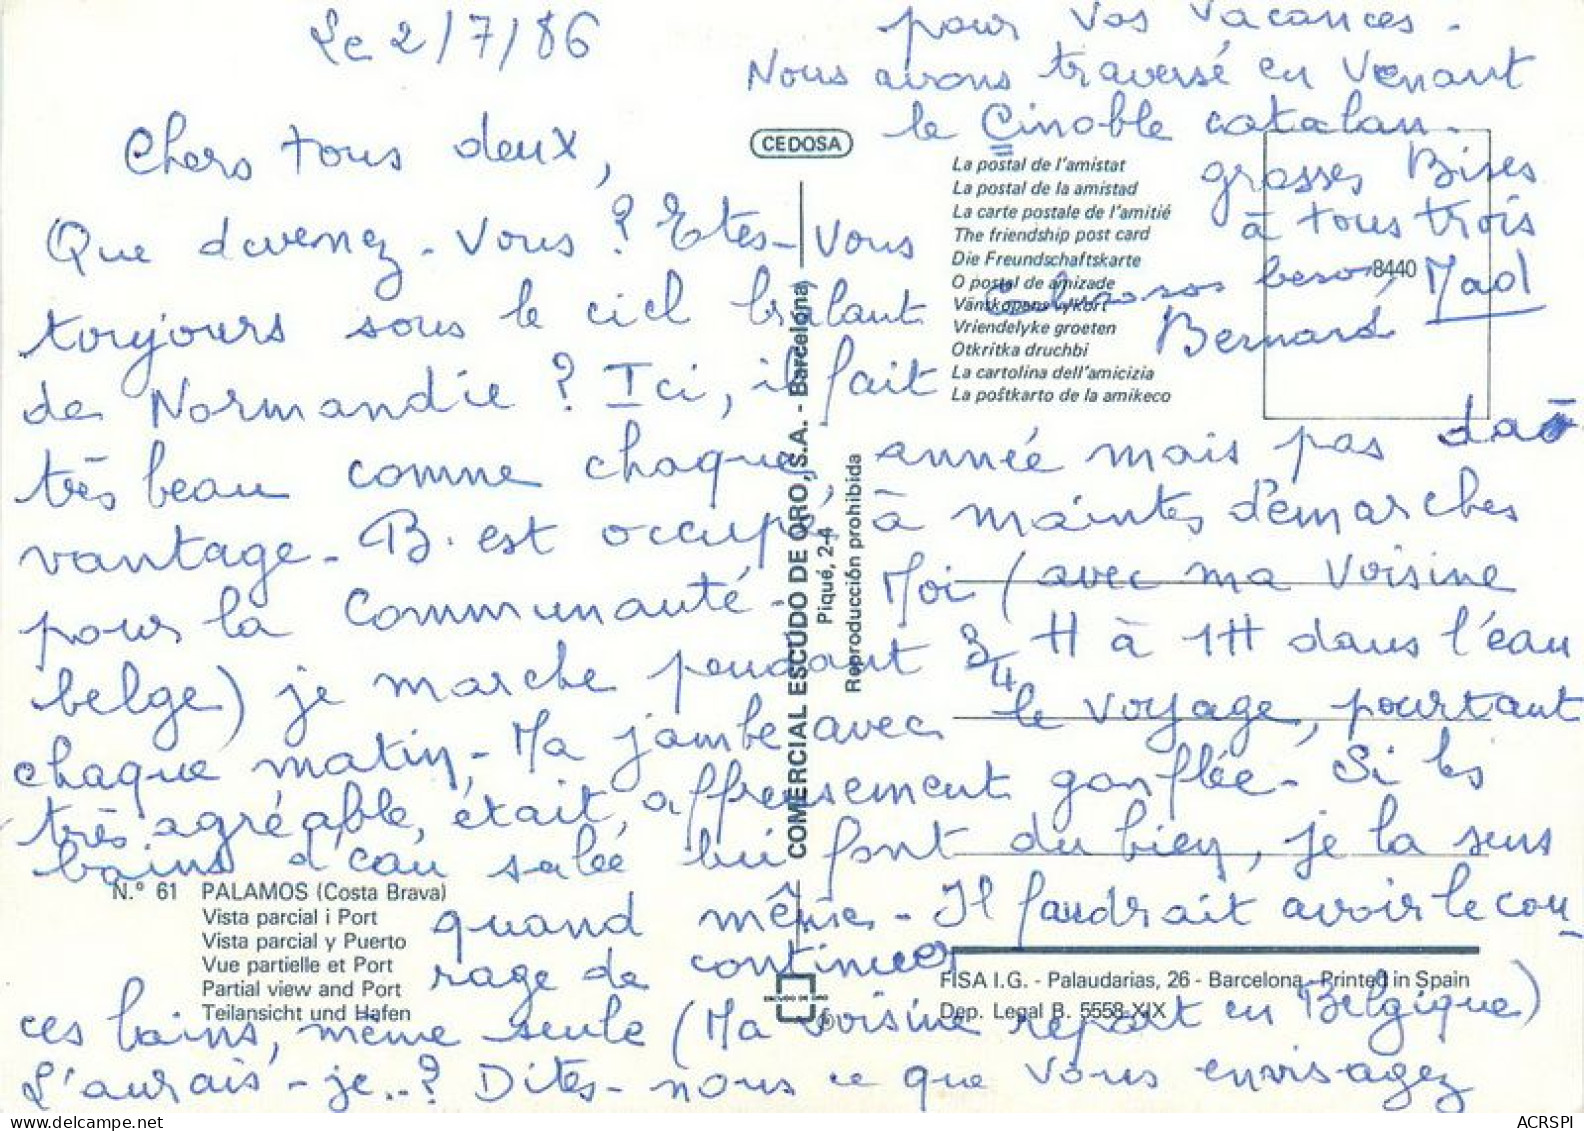 Le 2/7/86
Chers tous deux,
Que devenez-vous ? Etes-vous
toujours sous le ciel brûlant
de Normandie ? Ici, il fait
très beau comme chaque année mais pas da
vantage - B. est occupé à maintes démarches
pour la Communauté - Moi (avec ma voisine
belge) je marche pendant 3/4 H à 1H dans l'eau
chaque matin - Ma jambe avec le voyage, pourtant
très agréable, était affreusement gonflée - Si les
bains d'eau salée lui font du bien, je la sens
quand même - Il faudrait avoir le cou-
rage de continuer
ces bains, même seule (Ma voisine repart en Belgique)
L'aurais-je..? Dites-nous ce que vous envisagez
pour vos vacances -
Nous avons traversé en venant
le Cinoble catalan -
grosses Bises
à tous trois
beso, Mad
Bernard
CEDOSA
La postal de l'amistat
La postal de la amistad
La carte postale de l'amitié
The friendship post card
Die Freundschaftskarte
O postal de amizade
Vänskapens vykort
Vriendelyke groeten
Otkritka druchbi
La cartolina dell'amicizia
La poŝtkarto de la amikeco
8440
COMERCIAL ESCUDO DE ORO, S.A. - Barcelona
Piqué, 2-4
Reproducción prohibida
N.° 61 PALAMOS (Costa Brava)
Vista parcial i Port
Vista parcial y Puerto
Vue partielle et Port
Partial view and Port
Teilansicht und Hafen
ESCUDO DE ORO
FISA I.G. - Palaudarias, 26 - Barcelona - Printed in Spain
Dep. Legal B. 5558-XIX
ACRSPI